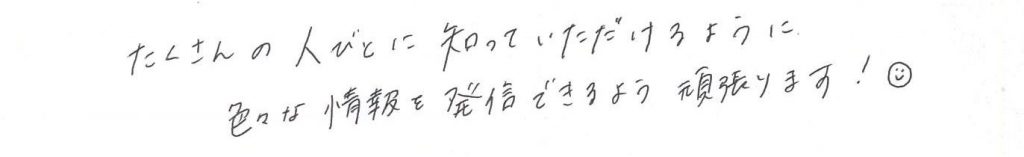 たくさんの人びとに知っていただけるように
色々な情報を発信できるよう頑張ります!☺